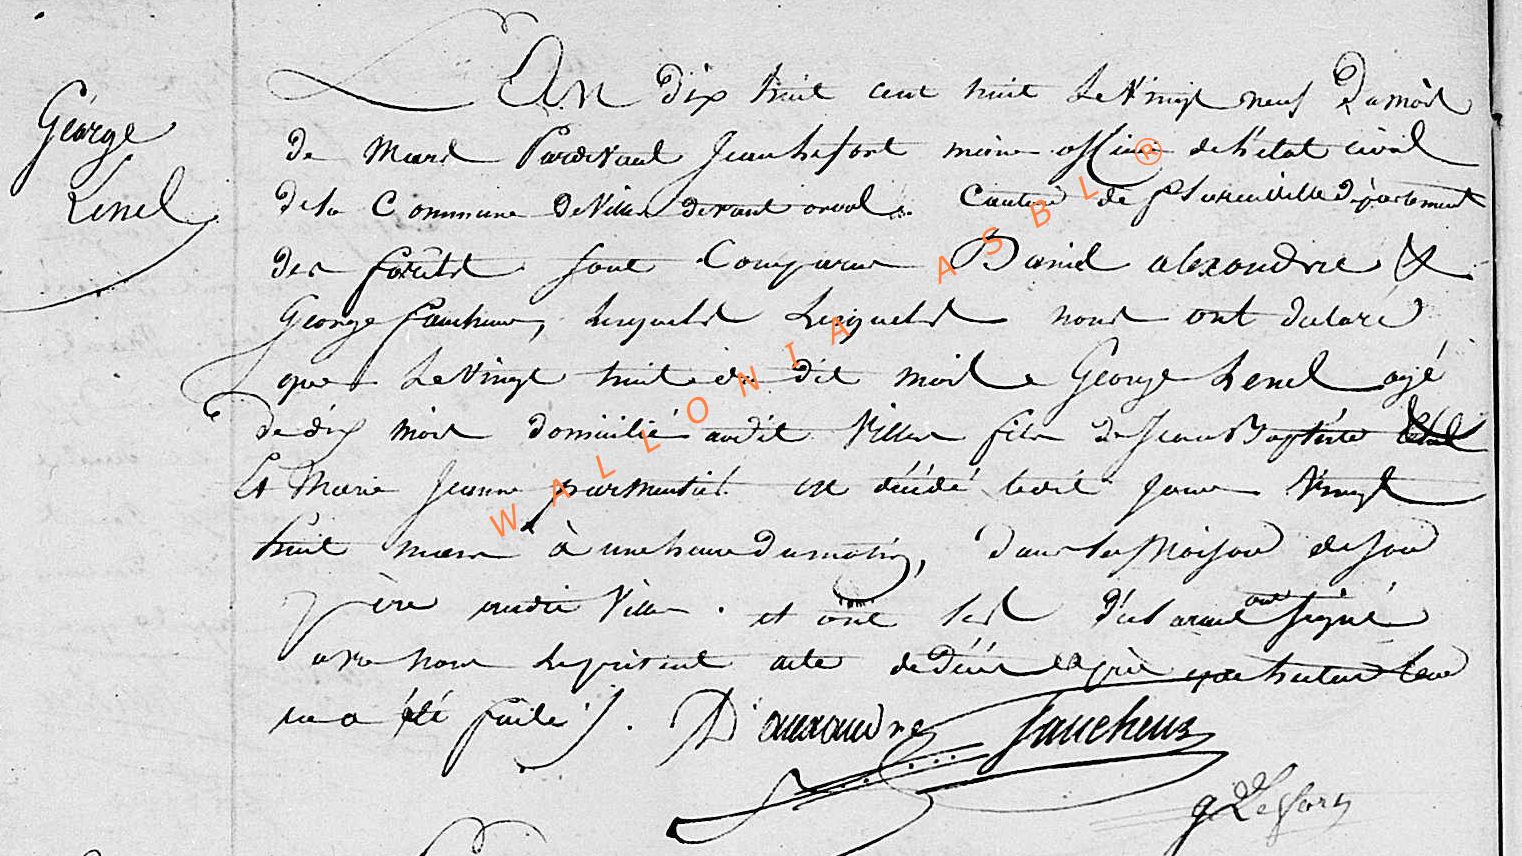 George
Lenel
L'An dix huit cent huit le vingt neuf du mois
de Mars Pardevant Jean Lefort maire officier de l'état civil
de la Commune de Villers devant orval. Canton de florenville département
des forêts sont Comparus Daniel alexandre &
George faucheux, lesquels lesquels nous ont déclaré
que le vingt huit du dit mois George Lenel agé
de dix mois domicilié audit Villers fils de Jean Baptiste
Et Marie Jeanne parmentier est décédé ledit jour Vingt
huit mars à une heure du matin, dans la Maison de son
père audit Villers. et ont les déclarant ont signé
avec nous le présent acte de décès après que lecture leur
en a été faite. D alexandre faucheux
g Lefort
WALLONIA ASBL ®